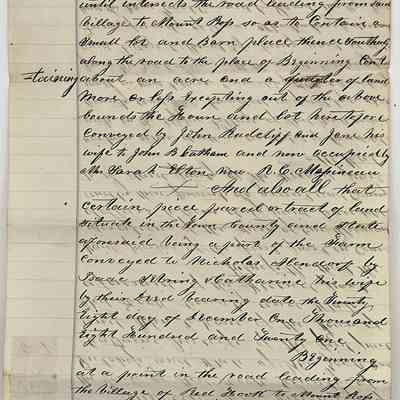 until intersects the road leading from said
Village to Mount Ross so as to Contain a
Small lot and Barn place thence Southerly
along the road to the place of Beginning Con=
=taining about an acre and a quarter of land
More or less Excepting out of the above
bounds the House and lot heretofore
Conveyed by John Radcliff and Jane his
wife to John B Latham and now occupied by
Mrs Sarah now R. C. Massonneau
And also all that
Certain piece parcel or tract of land
situate in the Town County and State
aforesaid being a part of the Farm
Conveyed to Nicholas by
Isaac Catharine his wife
by their Deed bearing date the Twenty
Eight day of December One Thousand
Eight Hundred and Twenty One
Beginning
at a point in the road leading from
the Village of Red Hook to Mount Ross